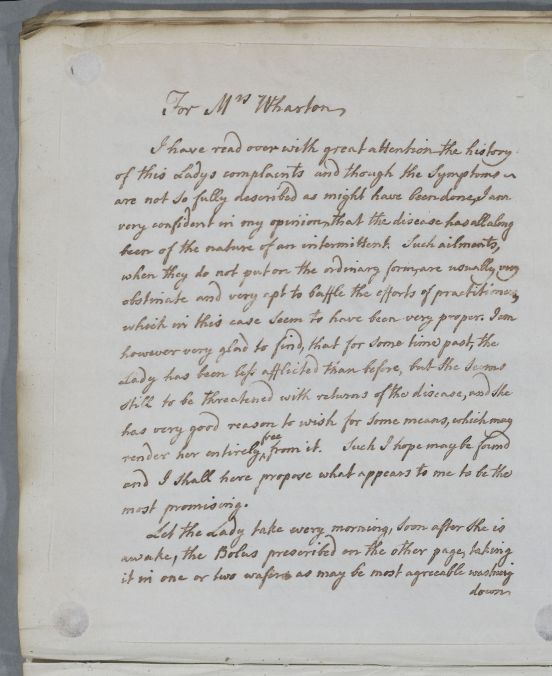 For Mrs Wharton
I have read over with great attention the history
of this Ladys complaints and though the Symptoms
are not so fully described as might have been done, I am
very confident in my opinion, that the disease has all along
been of the nature of an intermittent. Such ailments,
when they do not put on the ordinary form, are usually very
obstinate and very apt to baffle the efforts of practitioners,
which in this case seem to have been very proper. I am
however very glad to find, that for some time past, the
Lady has been less afflicted than before, but she seems
still to be threatened with returns of the disease, and she
has very good reason to wish for some means, which may
render her entirely free from it. Such I hope may be found
and I shall here propose what appears to me to be the
most promising.
Let the Lady take every morning, soon after she is
awake, the Bolus prescribed on the other page, taking
it in one or two wafers as may be most agreeable washing
down